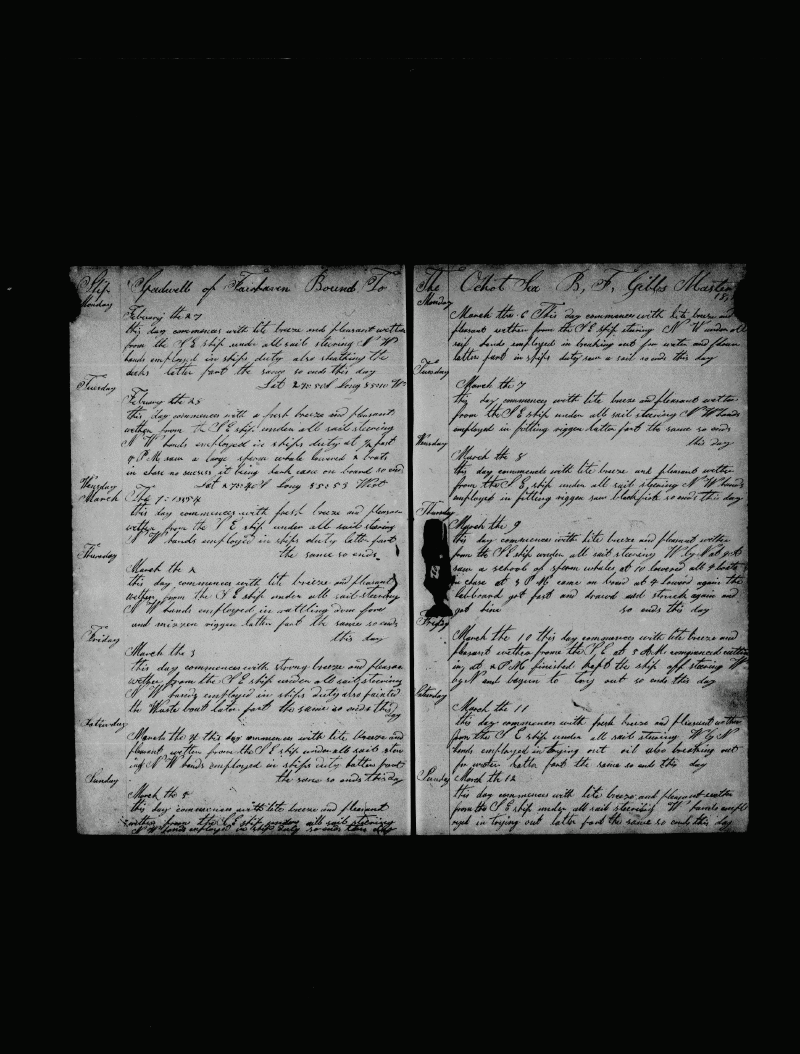 Ship Gladwell of Fairhaven Bound To
Monday
Februrey the 27
this day commences with lite breeze and pleasant wether
from the S E ship under all sail steering N W
hands employed in ships duty also sheathing the
decks latter part the same so ends this day
Lat Long
Tuesday
Februrey the 28
this day commences with a fresh breeze and pleasant
wether from the S E ship under all sail steering
N W hands employed in ships duty at past
4 P M saw a large sperm whale lowered 2 boats
in chase no sucsess it being dark came on board so end
Lat Long West
Wensday
March The 1 1854
this day commences with fresh breeze and pleasan
wether from the S E ship under all sail steering
N W hands employed in ships duty latter part
the same so ends
Thursday
March the 2
this day commences with lite breeze and pleasant
wether from the S E ship under all sail steering
N W hands employed in rattling down fore
and mizzen riggen latter part the same so ends
this day
Friday
March the 3
this day commences with strong breeze and pleasan
wether from the S E ship under all sail steering
N W hands employed in ships duty also painted
the Waste boat later part the same so ends this
day
Saturday
March the 4 this day commences with lite breeze and
plesent wether from the S E ship under all sails steer
ing N W hands employed in ships duty latter part
the same so ends this day
Sunday
March the 5
this day commences with lite breeze and pleasant
wether from the S E ship under all sail steering
N W hands employed in ships duty so ends this day
The Ochot Sea B, F, Gibbs Master
Monday
March the 6 This day commences with lite breeze and
plesant wether from the S E ship steering N W under all
sail hands employed in breaking out for water and flour
latter part in ships duty saw a sail so ends this day
Tuesday
March the 7
this day commences with lite breeze and pleasant wether
from the S E ship under all sail steering N W hands
employed in fitting riggen latter part the same so ends
this day
Wensday
March the 8
this day commences with lite breeze and pleasant wether
from the S E ship under all sail steering N W hands
employed in fitting riggen saw blackfish so ends this day
Thursday
March the 9
this day commences with lite breeze and plesant wether
from the S E ship under all sail steering W by N at 9 A
saw a school of sperm whales at 10 lowered all 4 boats
chase at 3 P M came on board at 4 lowerd again the
larboard got fast and drawed and struck again and
got him so ends this day
Friday
March the 10 this day commences with lite breeze and
plesant wether from the S E at 5 A M commenced cutting
in at 2 P M finished kept the ship off steering W
by N and begun to trey out so ends this day
Saturday
March the 11
this day commences with fresh breeze and plesant wether
from the S E ship under all sail steering W by N
hands employed in treying out oil also breaking out
for water latter part the same so ends the day
Sunday
March the 12
this day commences with lite breeze and plesant wether
from the S E ship under all sail steering W hands empl
oyed in treying out latter part the same so ends this day